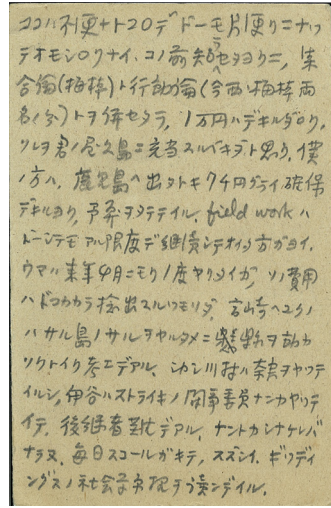 ココハ不便ナトコロデドーモ片便リニナツ
テオモシロクナイ。コノ前知ラセタヨウニ,集
合倫(梅棹)ト行動倫(今西,梅棹両
名ノ分)トヲ併セタラ,1万円ハデキルダロウ,
ソレヲ君ノ屋久島ニ充当スルベキダト思ウ。僕
ノ方ハ,鹿児島ヘ出タトキ7千円グライ確保
デキルヨウ,予算ヲタテテイル。field workハ
ドーシテモアル限度デ継続シテオク方ガヨイ。
ウマハ来年4月ニモウ1度ヤリタイガ,ソノ費用
ハドコカカラ捻出スルツモリダ。宮崎ヘユクノ
ハサル島ノサルヲヤルタメニ県ヲ
ツケトイタデアル。シカシ川村ハ奈良ヲヤツテ
イルシ,伊谷ハストライキノ委員ナンカヤツテ
イテ,後継者難デアル。ナントカシナケレバ
ナラヌ。毎日スコールガキテ,スズシイ。ギツディ
ングスノ社会学ヲ読ンデイル。